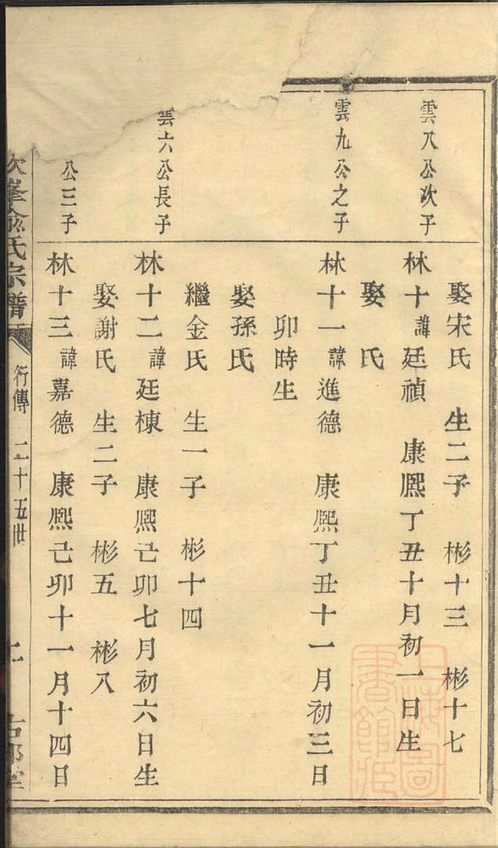 娶宋氏 生二子 彬十三 彬十七
雲八公次子
林十 諱廷禎 康熙丁丑十月初一日生
娶 氏
雲九公之子
林十一 諱進德 康熙丁丑十一月初三日
卯時生
娶孫氏
繼金氏 生一子 彬十四
雲六公長子
林十二 諱廷棟 康熙己卯七月初六日生
娶謝氏 生二子 彬五 彬八
公三子
林十三 諱嘉德 康熙己卯十一月十四日
峯俞氏宗譜 行傳 二十五世